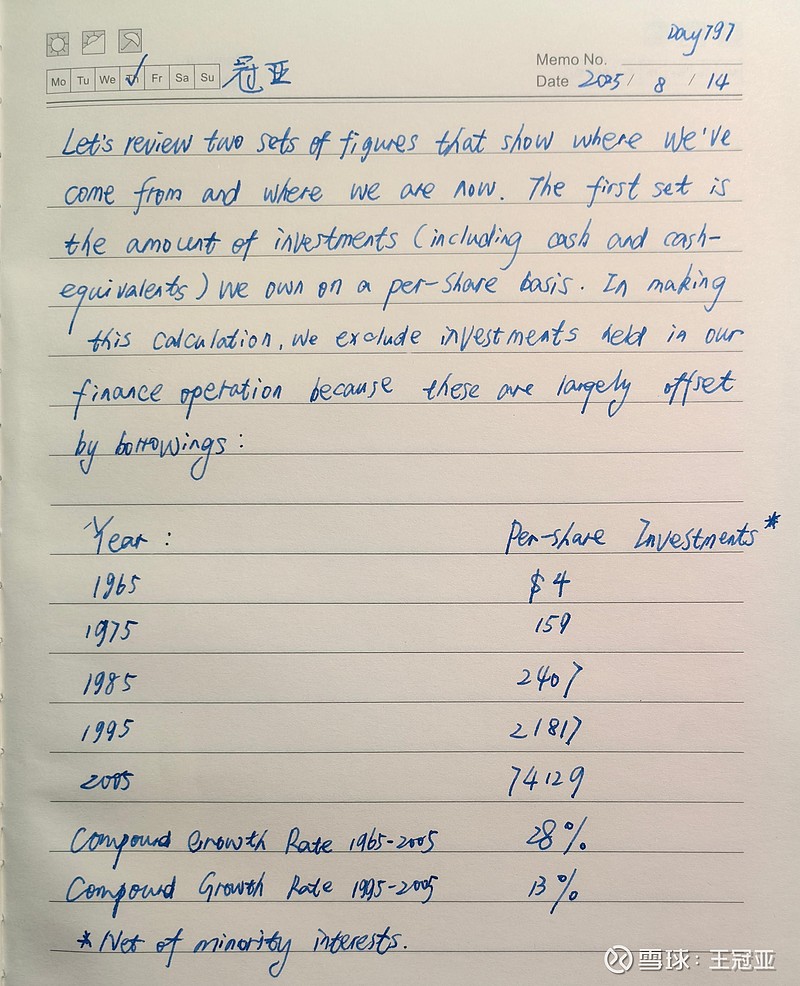 Day 797
Memo No.
Mo Tu We Th Fr Sa Su 冠亚
Date 2025 / 8 / 14
Let's review two sets of figures that show where we've
come from and where we are now. The first set is
the amount of investments (including cash and cash-
equivalents) we own on a per-share basis. In making
this calculation, we exclude investments held in our
finance operation because these are largely offset
by borrowings:
Year : Per-share Investments*
1965 $4
1975 159
1985 2407
1995 21817
2005 74129
Compound Growth Rate 1965-2005 28%
Compound Growth Rate 1995-2005 13%
*Net of minority interests.
雪球：王冠亚